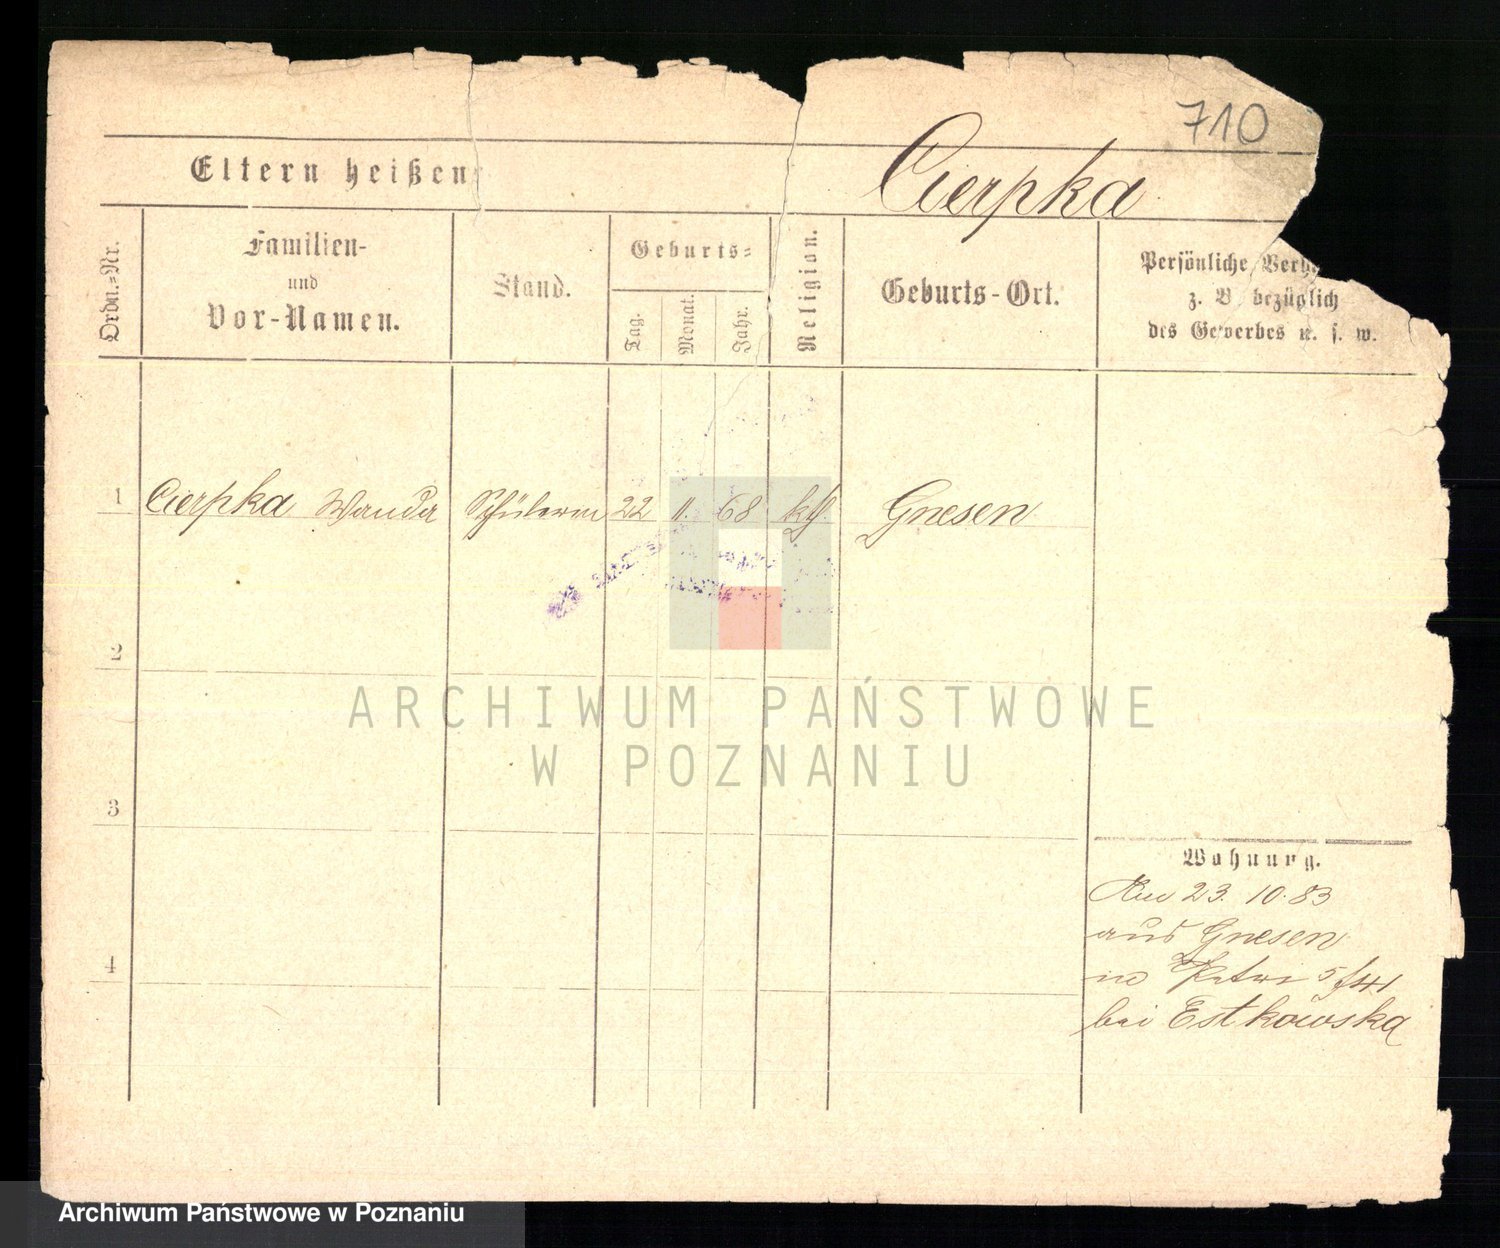 710
Eltern heißen:
Cierpka
Ordn.=Nr.
Familien-
und
Vor-Namen.
Stand.
Geburts=
Tag.
Monat.
Jahr.
Religion.
Geburts-Ort.
Persönliche Verh
z. B. bezüglich
des Gewerbes u. s. w.
1 Cierpka Wanda Schülerin 22 11. 68 kth. Gnesen
2
3
4
Wohnung.
23. 10. 83
aus Gnesen
in Petri 5
bei Estkowska
ARCHIWUM PAŃSTWOWE
W POZNANIU
Archiwum Państwowe w Poznaniu